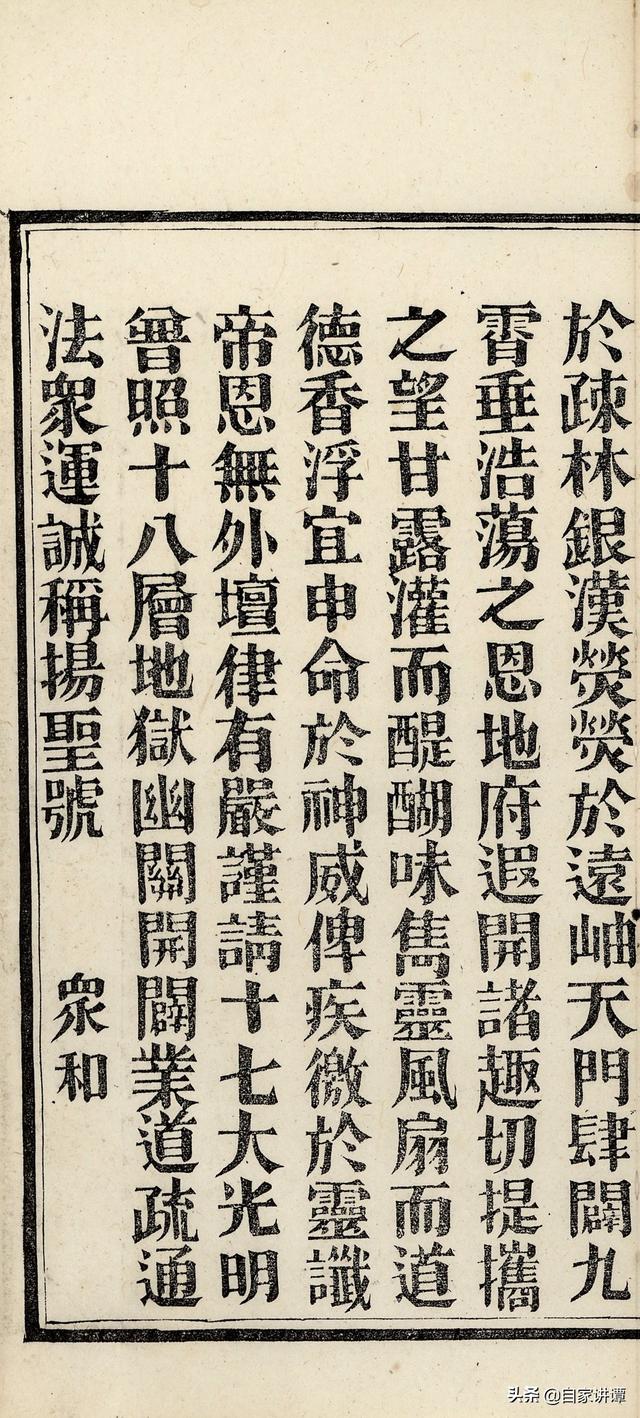 於疎林銀漢熒熒於遠岫天門肆闢九
霄垂浩蕩之恩地府遐開諸趣切提攜
之望甘露灌而醍醐味雋靈風扇而道
德香浮宜申命於神威俾疾徹於靈讖
帝恩無外壇律有嚴謹請十七大光明
曾照十八層地獄幽關開闢業道疏通
法眾運誠稱揚聖號 眾和
头条 @自家讲谭